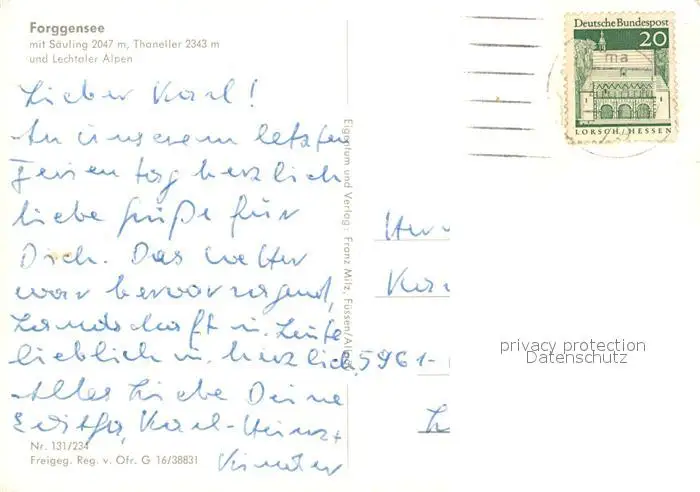 Forggensee
mit Säuling 2047 m, Thaneller 2343 m
und Lechtaler Alpen
Lieber Karl!
An unserem letzten
Ferientag herzlich
liebe Grüße für
Dich. Das Wetter
war hervorragend,
Landschaft u. Leute
lieblich u. herzlich.
Alles Liebe Deine
Editha, Karl-Heinz +
Kinder
Nr. 131/234
Freigeg. Reg. v. Ofr. G 16/38831
Eigentum und Verlag: Franz Milz, Füssen/Allgäu
Deutsche Bundespost
20
LORSCH/HESSEN
Her
Kar
5961-
privacy protection
Datenschutz